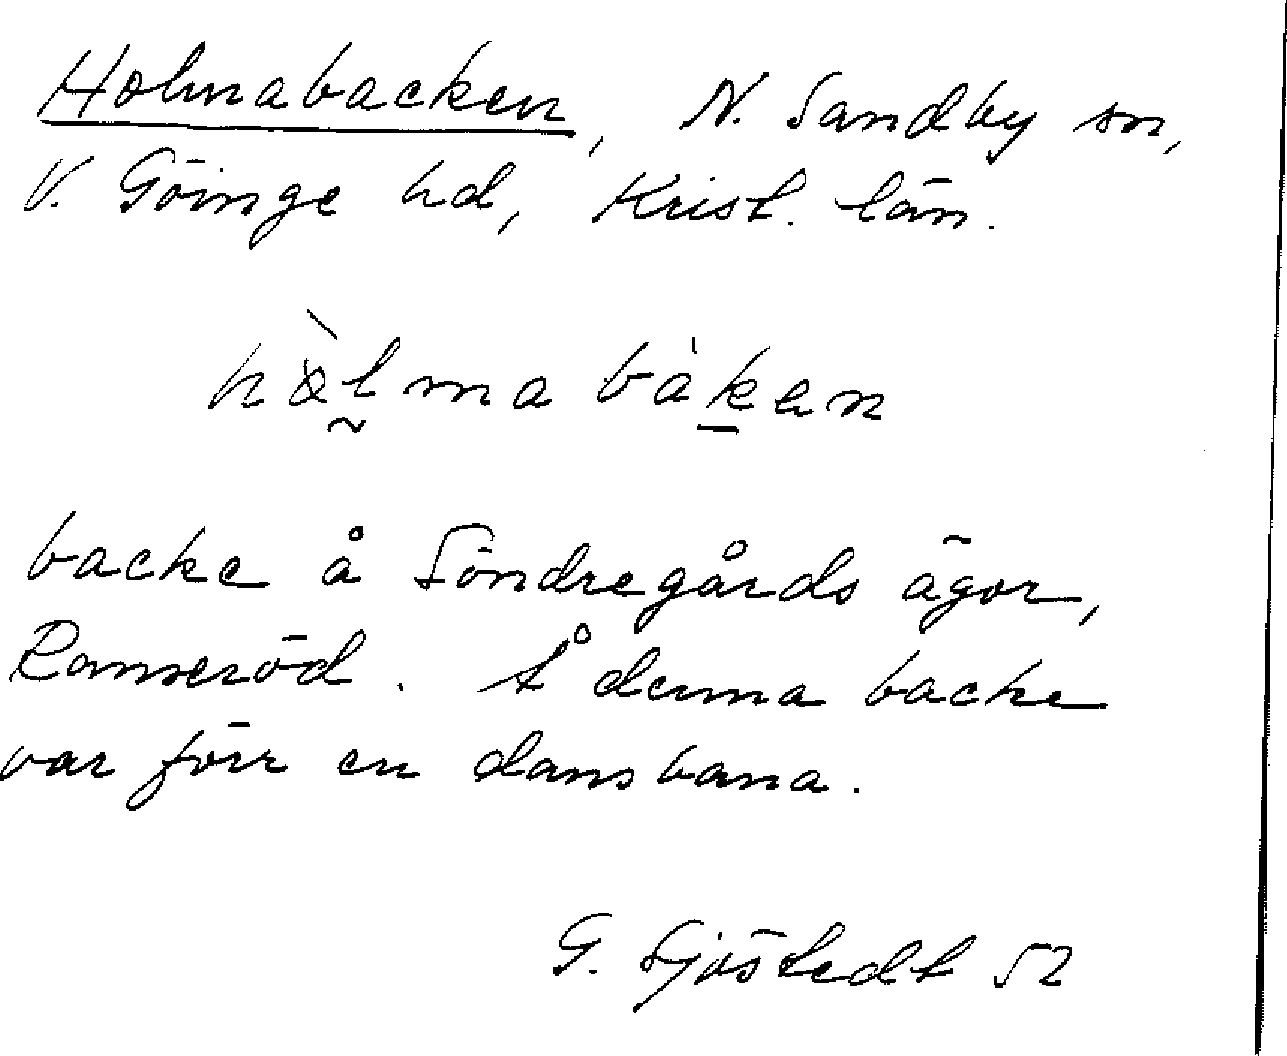 Holmabacken, N. Sandby sn,
V. Göinge hd, Krist. län.
backe å Söndregårds ägor,
Ramseröd. Å denna backe
var förr en dansbana.
G. Sjöstedt 52